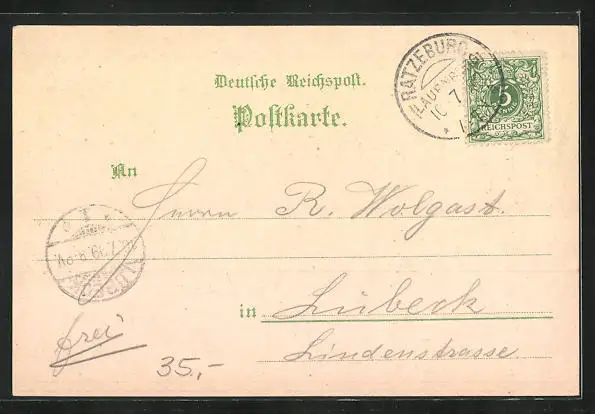 Deutsche Reichspost.
Postkarte.
RATZEBURG
5
REICHSPOST
An
Herrn R. Wolgast.
in Lübeck
Lindenstrasse
frei
35,-